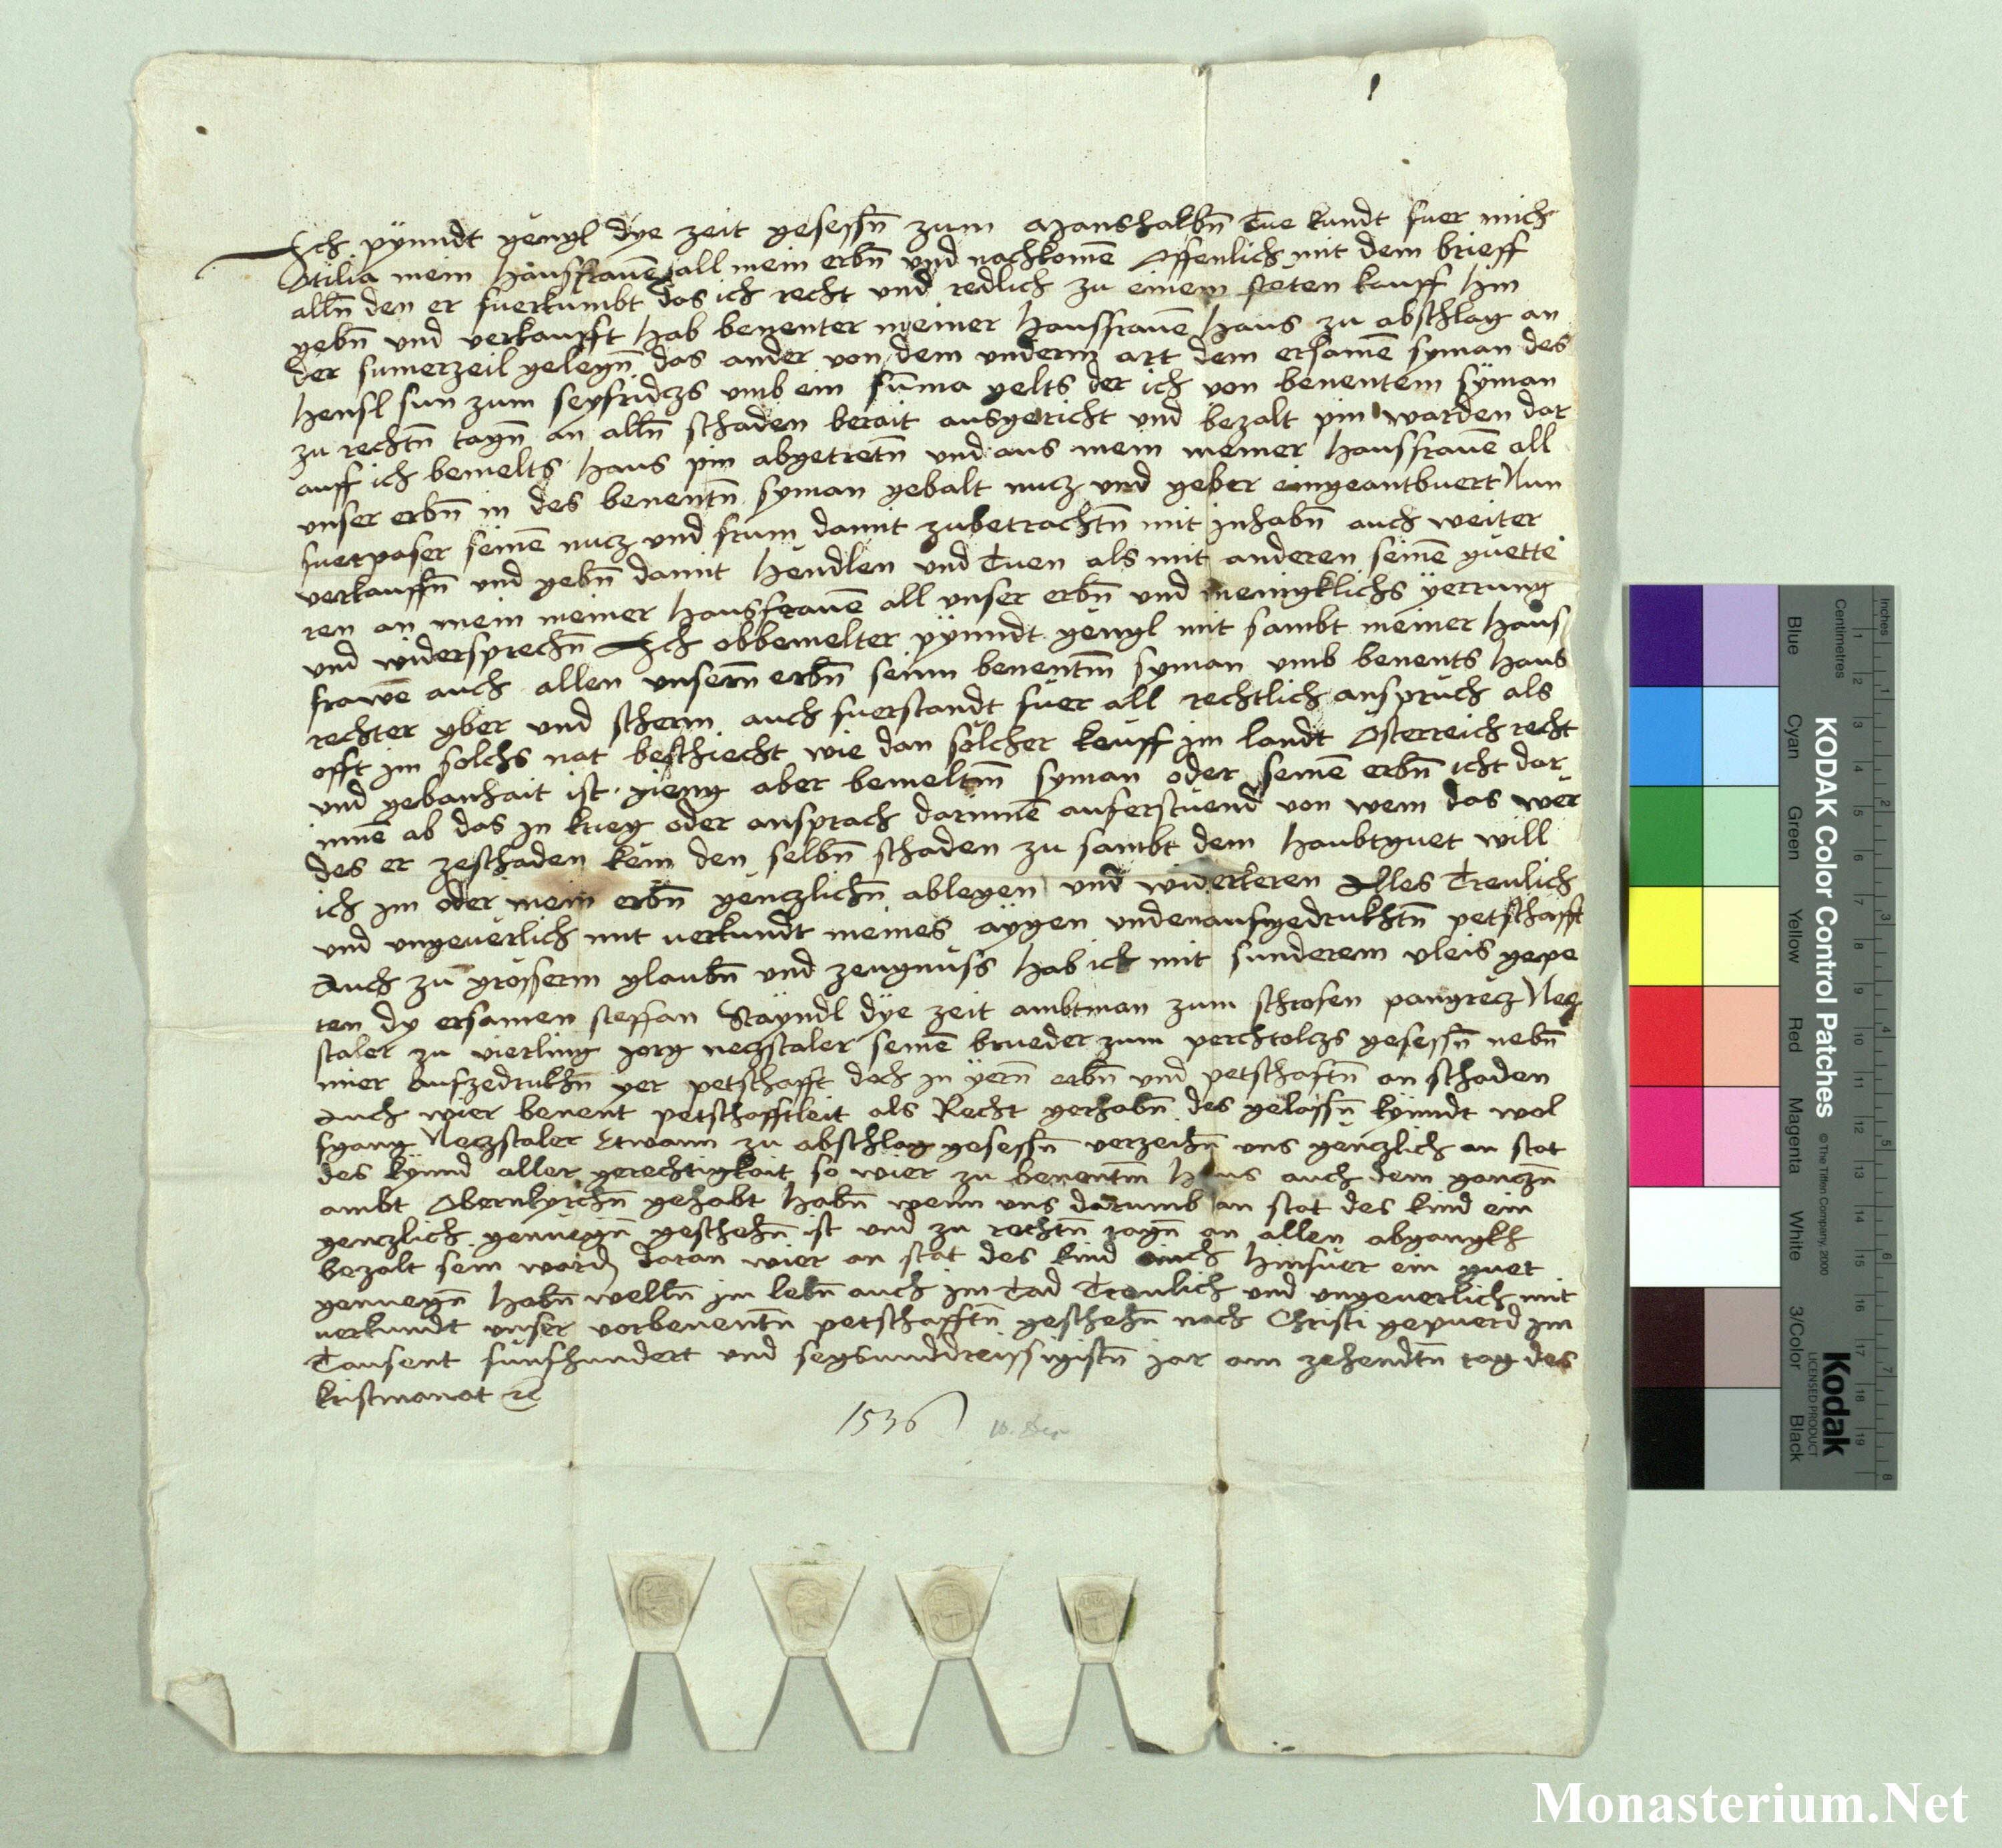 Ich pÿnndt gengl dÿe zeit gesessn̄ zum Manshalbn̄ Tue kundt fuer mich
Otilia mein hausfrauē all mein erbn̄ vnd nachkomē Offenlich mit dem brieff
alln̄ den er fuerkumbt das ich recht vnd redlich zu einem steten kauff hin
gebn̄ vnd verkaufft hab benenter meiner hausfrauē haus zu abschlag an
der sumerzeil gelegn̄ das ander von dem vnderm art dem ersamē syman des
hensl sun zum seyfridczs vmb ein sūma gelts der ich von benentem sÿman
zu rechtn̄ tagn̄ an alln̄ schaden berait ausgericht vnd bezalt pin warden dar
auff ich bemelts haus pin abgetretn̄ vnd aus mein meiner hausfrauē all
vnser erbn̄ in des benentn̄ syman gebalt nucz vnd geber eingeantbuert Nun
fuerpaser seinē nucz vnd frum damit zubetrachtn̄ mit inhabn̄ auch weiter
verkauffn̄ vnd gebn̄ damit hendlen vnd Tuen als mit anderen seinē guette
ren an mein meiner hausfrauē all vnser erbn̄ vnd meingklichs ÿerrung
vnd widersprechn̄ Ich obbemelter pÿnndt gengl mit sambt meiner haus
frawē auch allen vnsern̄ erbn̄ seinn benentm̄ syman vmb benents haus
rechter gber vnd scherm auch fuerstandt fuer all rechtlich anspruch als
offt im solchs nat beschiecht wie dan solcher keuff im landt Osterreich recht
vnd gebanhait ist gieng aber bemeltm̄ syman oder seinē erbn̄ icht dar
innē ab das in krieg oder ansprach darinnē auferstuend von wem das wer
des er zeschaden kem den selbn̄ schaden zu sambt dem haubtguet will
ich im oder mein erbn̄ genczlichn̄ ablegen vnd widerkeren Alles Treulich
vnd vngeuerlich mit uerkundt meines aygen vndenaufgedrukhtn̄ petschafft
Auch zu grosserm glaubn̄ vnd zeugnuss hab ich mit sunderem vleis gepe
ten dy ersamen steffan Stayndl dÿe zeit ambtman zum schrofen pangrecz Necz
staler zu vierling jorg neczstaler seinē brueder zum perchtolczs gesessn̄ nebn̄
mier aufzedrukhn̄ yer petschafft doch in ÿern̄ erbn̄ vnd petschaftn̄ an schaden
Auch wier benent petschafftleit als Recht gerhabn̄ des gelassn̄ kÿnndt wol
fgang Neczstaler Etwann zu abschlag gesessn̄ verzeihn̄ vns genczlich an stat
des kÿnnd aller gerechtigkait so wier zu benentm̄ haus auch dem ganczn̄
ambt Obernkyrchn̄ gehabt habn̄ wenn vns darumb an stat des kind ein
genczlich genuegn̄ geschehn̄ ist vnd zu rechtn̄ tagn̄ an allen abgangkh
bezalt sein ward daran wier an stat des kind auch hinfuer ein guet
genuegn̄ habn̄ welln̄ im lebn̄ auch im Tad Treulich vnd vngeuerlich mit
uerkundt vnser vorbenentn̄ petschafftn̄ geschehn̄ nach Christi gepuerd im
Tausent funfhundert vnd segsunddreissigistn̄ jar am zehendtn̄ tag des
kristmanat ꝛc̄
1536
10. Dez
Inches
Centimetres
KODAK Color Control Patches
© The Tiffen Company, 2000
Blue
Cyan
Green
Yellow
Red
Magenta
White
3/Color
Black
Kodak
LICENSED PRODUCT
Monasterium.Net